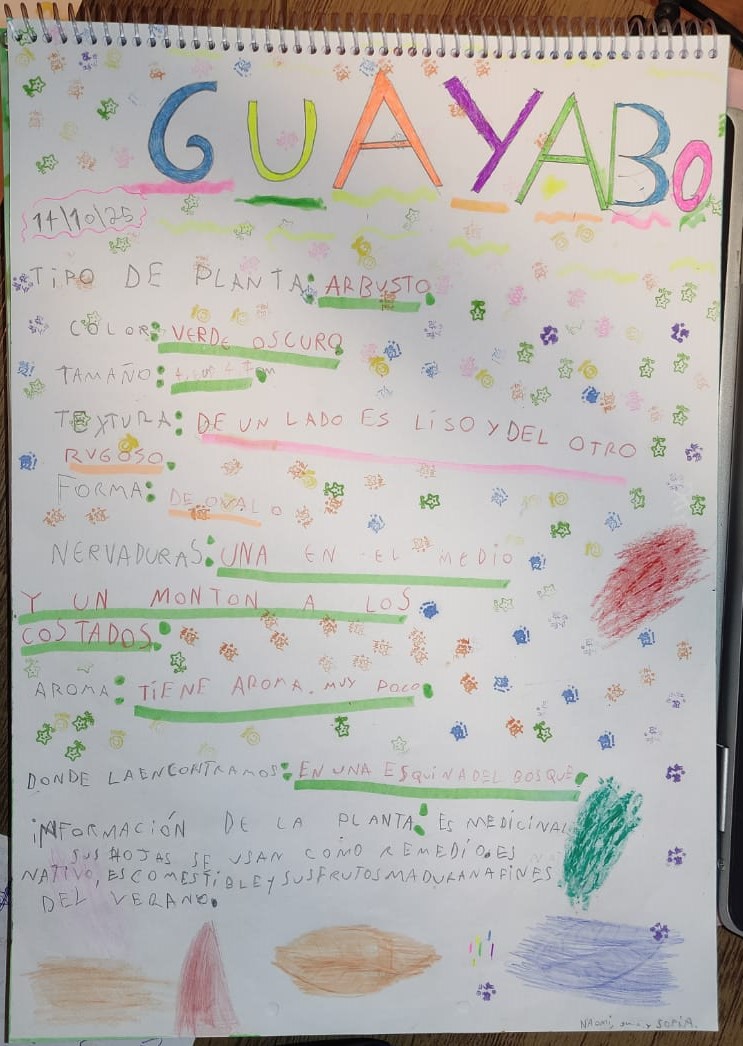 GUAYABO
14/10/25
TIPO DE PLANTA: ARBUSTO.
COLOR: VERDE OSCURO
TAMAÑO:
TEXTURA: DE UN LADO ES LISO Y DEL OTRO
RUGOSO.
FORMA: DE OVALO.
NERVADURAS: UNA EN EL MEDIO
Y UN MONTON A LOS
COSTADOS.
AROMA: TIENE AROMA. MUY POCO.
DONDE LA ENCONTRAMOS: EN UNA ESQUINA DEL BOSQUE.
INFORMACIÓN DE LA PLANTA: ES MEDICINAL
SUS HOJAS SE USAN COMO REMEDIO. ES
NATIVO, ES COMESTIBLE Y SUS FRUTOS MADURAN A FINES
DEL VERANO.
NAOMI, y SOFIA.